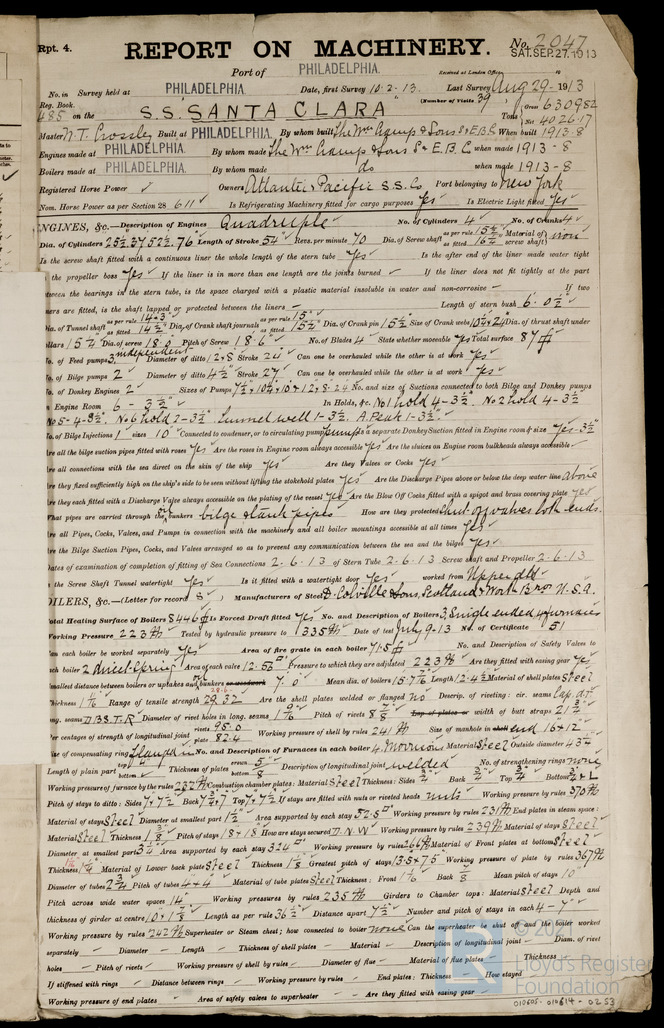 Rpt. 4. REPORT ON MACHINERY. No. 2047
SAT. SEP. 27. 1913
Port of PHILADELPHIA. Received at London Office
No. in Survey held at PHILADELPHIA Date, first Survey 10.2.13. Last Survey Aug 29- 1913
Reg. Book. (Number of Visits 39)
485 on the S.S. "SANTA CLARA" Tons Gross 6309.82 Net 4026.17
Master W.T. Crossley Built at PHILADELPHIA. By whom built The Wm Cramp & Sons S & E.B.C. When built 1913-8
Engines made at PHILADELPHIA By whom made The Wm Cramp & Sons S & E.B.C when made 1913-8
Boilers made at PHILADELPHIA. By whom made do when made 1913-8
Registered Horse Power Owners Atlantic & Pacific S.S. Co Port belonging to New York
Nom. Horse Power as per Section 28 611 Is Refrigerating Machinery fitted for cargo purposes Yes Is Electric Light fitted Yes
ENGINES, &c.—Description of Engines Quadruple No. of Cylinders 4 No. of Cranks 4
Dia. of Cylinders 25½. 37. 52½. 76" Length of Stroke 54" Revs. per minute 70 Dia. of Screw shaft as per rule 15½" as fitted 16¼" Material of screw shaft iron
Is the screw shaft fitted with a continuous liner the whole length of the stern tube Yes Is the after end of the liner made water tight
the propeller boss Yes If the liner is in more than one length are the joints burned — If the liner does not fit tightly at the part
between the bearings in the stern tube, is the space charged with a plastic material insoluble in water and non-corrosive — If two
ners are fitted, is the shaft lapped or protected between the liners — Length of stern bush 6'. 0½"
Dia. of Tunnel shaft as per rule 14.3 as fitted 14½" Dia. of Crank shaft journals as per rule 15" as fitted 15½" Dia. of Crank pin 15½" Size of Crank webs 10¼ x 24 Dia. of thrust shaft under
ollars 15¼" Dia. of screw 18.0 Pitch of Screw 18.6" No. of Blades 4 State whether moveable Yes Total surface 87 ft
No. of Feed pumps 3 independent Diameter of ditto 12 x 8 Stroke 24" Can one be overhauled while the other is at work Yes
No. of Bilge pumps 2 Diameter of ditto 4½" Stroke 27" Can one be overhauled while the other is at work Yes
No. of Donkey Engines 2 Sizes of Pumps No. and size of Suctions connected to both Bilge and Donkey pumps
In Engine Room 6 - 3½" In Holds, &c. No 1 hold 4-3½". No 2 hold 4-3½
No 5-4-3½". No 6 hold 2-3½". Tunnel well 1-3½. A. Peak 1-3½"
No. of Bilge Injections 1 sizes 10" Connected to condenser, or to circulating pump pump Is a separate Donkey Suction fitted in Engine room & size Yes-3½
Are all the bilge suction pipes fitted with roses Yes Are the roses in Engine room always accessible Yes Are the sluices on Engine room bulkheads always accessible —
Are all connections with the sea direct on the skin of the ship Yes Are they Valves or Cocks Yes
Are they fixed sufficiently high on the ship's side to be seen without lifting the stokehold plates Yes Are the Discharge Pipes above or below the deep water line above
Are they each fitted with a Discharge Valve always accessible on the plating of the vessel Yes Are the Blow Off Cocks fitted with a spigot and brass covering plate Yes
What pipes are carried through the oil bunkers bilge & tank pipes How are they protected Shut off valves both ends.
Are all Pipes, Cocks, Valves, and Pumps in connection with the machinery and all boiler mountings accessible at all times Yes
Are the Bilge Suction Pipes, Cocks, and Valves arranged so as to prevent any communication between the sea and the bilges Yes
Dates of examination of completion of fitting of Sea Connections 2.6.13 of Stern Tube 2.6.13 Screw shaft and Propeller 2.6.13
Is the Screw Shaft Tunnel watertight Yes Is it fitted with a watertight door Yes worked from Upper dk
BOILERS, &c.—(Letter for record S) Manufacturers of Steel D. Colville & Sons, Scotland & Worth Bros U.S.A.
Total Heating Surface of Boilers 8446 Is Forced Draft fitted Yes No. and Description of Boilers 3, Single ended 4 furnaces
Working Pressure 223 lb Tested by hydraulic pressure to 335 lb Date of test July 9-13 No. of Certificate 51
Can each boiler be worked separately Yes Area of fire grate in each boiler 71.5 No. and Description of Safety Valves to
each boiler 2 direct spring Area of each valve 12.56 Pressure to which they are adjusted 223 lb Are they fitted with easing gear Yes
Smallest distance between boilers or uptakes and oil bunkers or woodwork 7'.0" Mean dia. of boilers 15.7⅞ Length 12.4½ Material of shell plates Steel
Thickness 1 Range of tensile strength 29.32 28.6 Are the shell plates welded or flanged no Descrip. of riveting: cir. seams Lap. dr.
long. seams D.B.S.T.R Diameter of rivet holes in long. seams 1 Pitch of rivets 8⅞ Lap of plates or width of butt straps 21¾
Per centages of strength of longitudinal joint rivets 95.0 plate 82.4 Working pressure of shell by rules 241 lb Size of manhole in shell end 16 x 12
Size of compensating ring flanged in No. and Description of Furnaces in each boiler 4 Morrison Material Steel Outside diameter 43¾
Length of plain part top bottom Thickness of plates crown bottom Description of longitudinal joint welded No. of strengthening rings none
Working pressure of furnace by the rules 232 lb Combustion chamber plates: Material Steel Thickness: Sides Back Top Bottom
Pitch of stays to ditto: Sides 7 x 7½ Back Top 7 x 7½ If stays are fitted with nuts or riveted heads nuts Working pressure by rules 370 lb
Material of stays Steel Diameter at smallest part 1½" Area supported by each stay 52.5 Working pressure by rules 231 lb End plates in steam space:
Material Steel Thickness 1⅜ Pitch of stays 18 x 18 How are stays secured D.N.W Working pressure by rules 239 lb Material of stays Steel
Diameter at smallest part 3¼ Area supported by each stay 324 Working pressure by rules 266 lb Material of Front plates at bottom Steel
Thickness Material of Lower back plate Steel Thickness 1⅛ Greatest pitch of stays 13.5 x 7.5 Working pressure of plate by rules 367 lb
Diameter of tubes 2¾ Pitch of tubes 4 x 4 Material of tube plates Steel Thickness: Front Back ⅞ Mean pitch of stays 10
Pitch across wide water spaces 14" Working pressures by rules 235 lb Girders to Chamber tops: Material Steel Depth and
thickness of girder at centre 10 x 1⅛ Length as per rule 36½ Distance apart 7½ Number and pitch of stays in each 4 - 7
Working pressure by rules 242 lb Superheater or Steam chest; how connected to boiler none Can the superheater be shut off and the boiler worked
separately — Diameter — Length Thickness of shell plates — Material — Description of longitudinal joint — Diam. of rivet
holes — Pitch of rivets — Working pressure of shell by rules — Diameter of flue — Material of flue plates — Thickness
If stiffened with rings — Distance between rings — Working pressure by rules — End plates: Thickness How stayed
Working pressure of end plates — Area of safety valves to superheater — Are they fitted with easing gear
© 20
Lloyd's Register
Foundation
010605-010614-0253